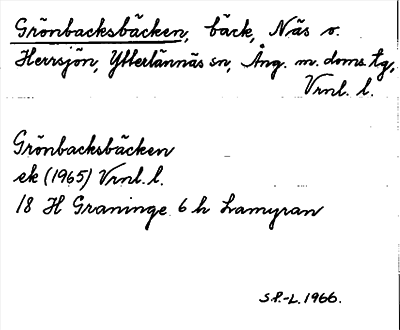 Grönbacksbäcken, bäck, Näs v.
Herrsjön, Ytterlännäs sn, Ång. m. doms. tg,
Vrnl. l.
Grönbacksbäcken
ek (1965) Vrnl. l.
18 H Graninge 6 h Lamyran
S.P.-L. 1966.